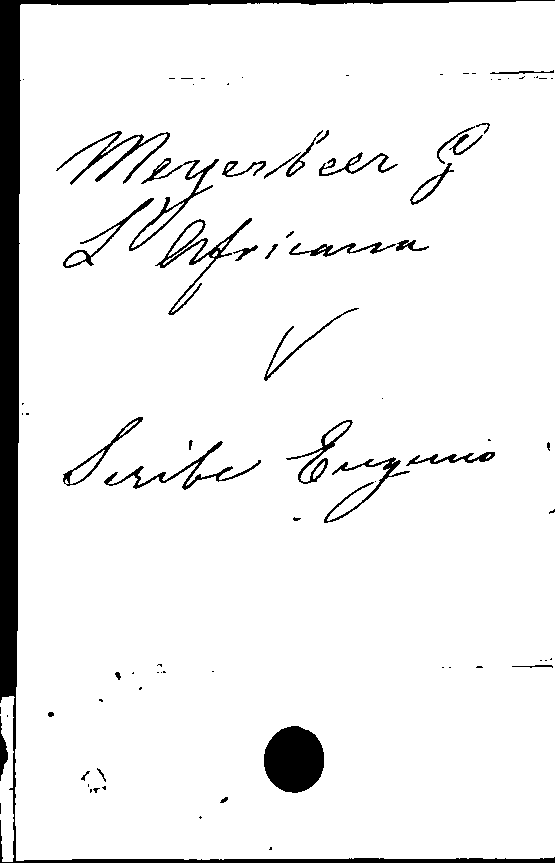 Meyerbeer G
L'Africana
V
Scribe Eugenio